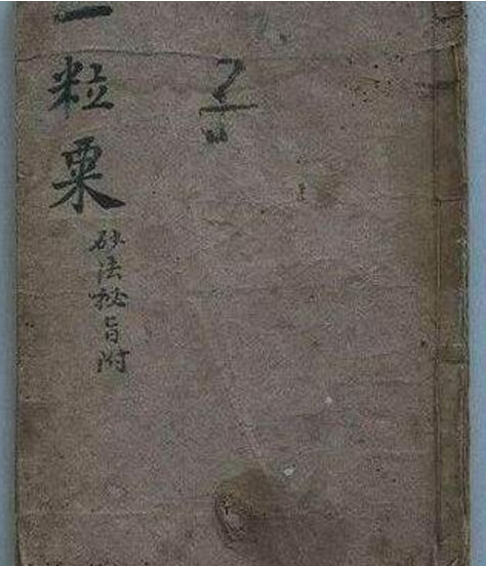 一粒粟
砂法秘旨附